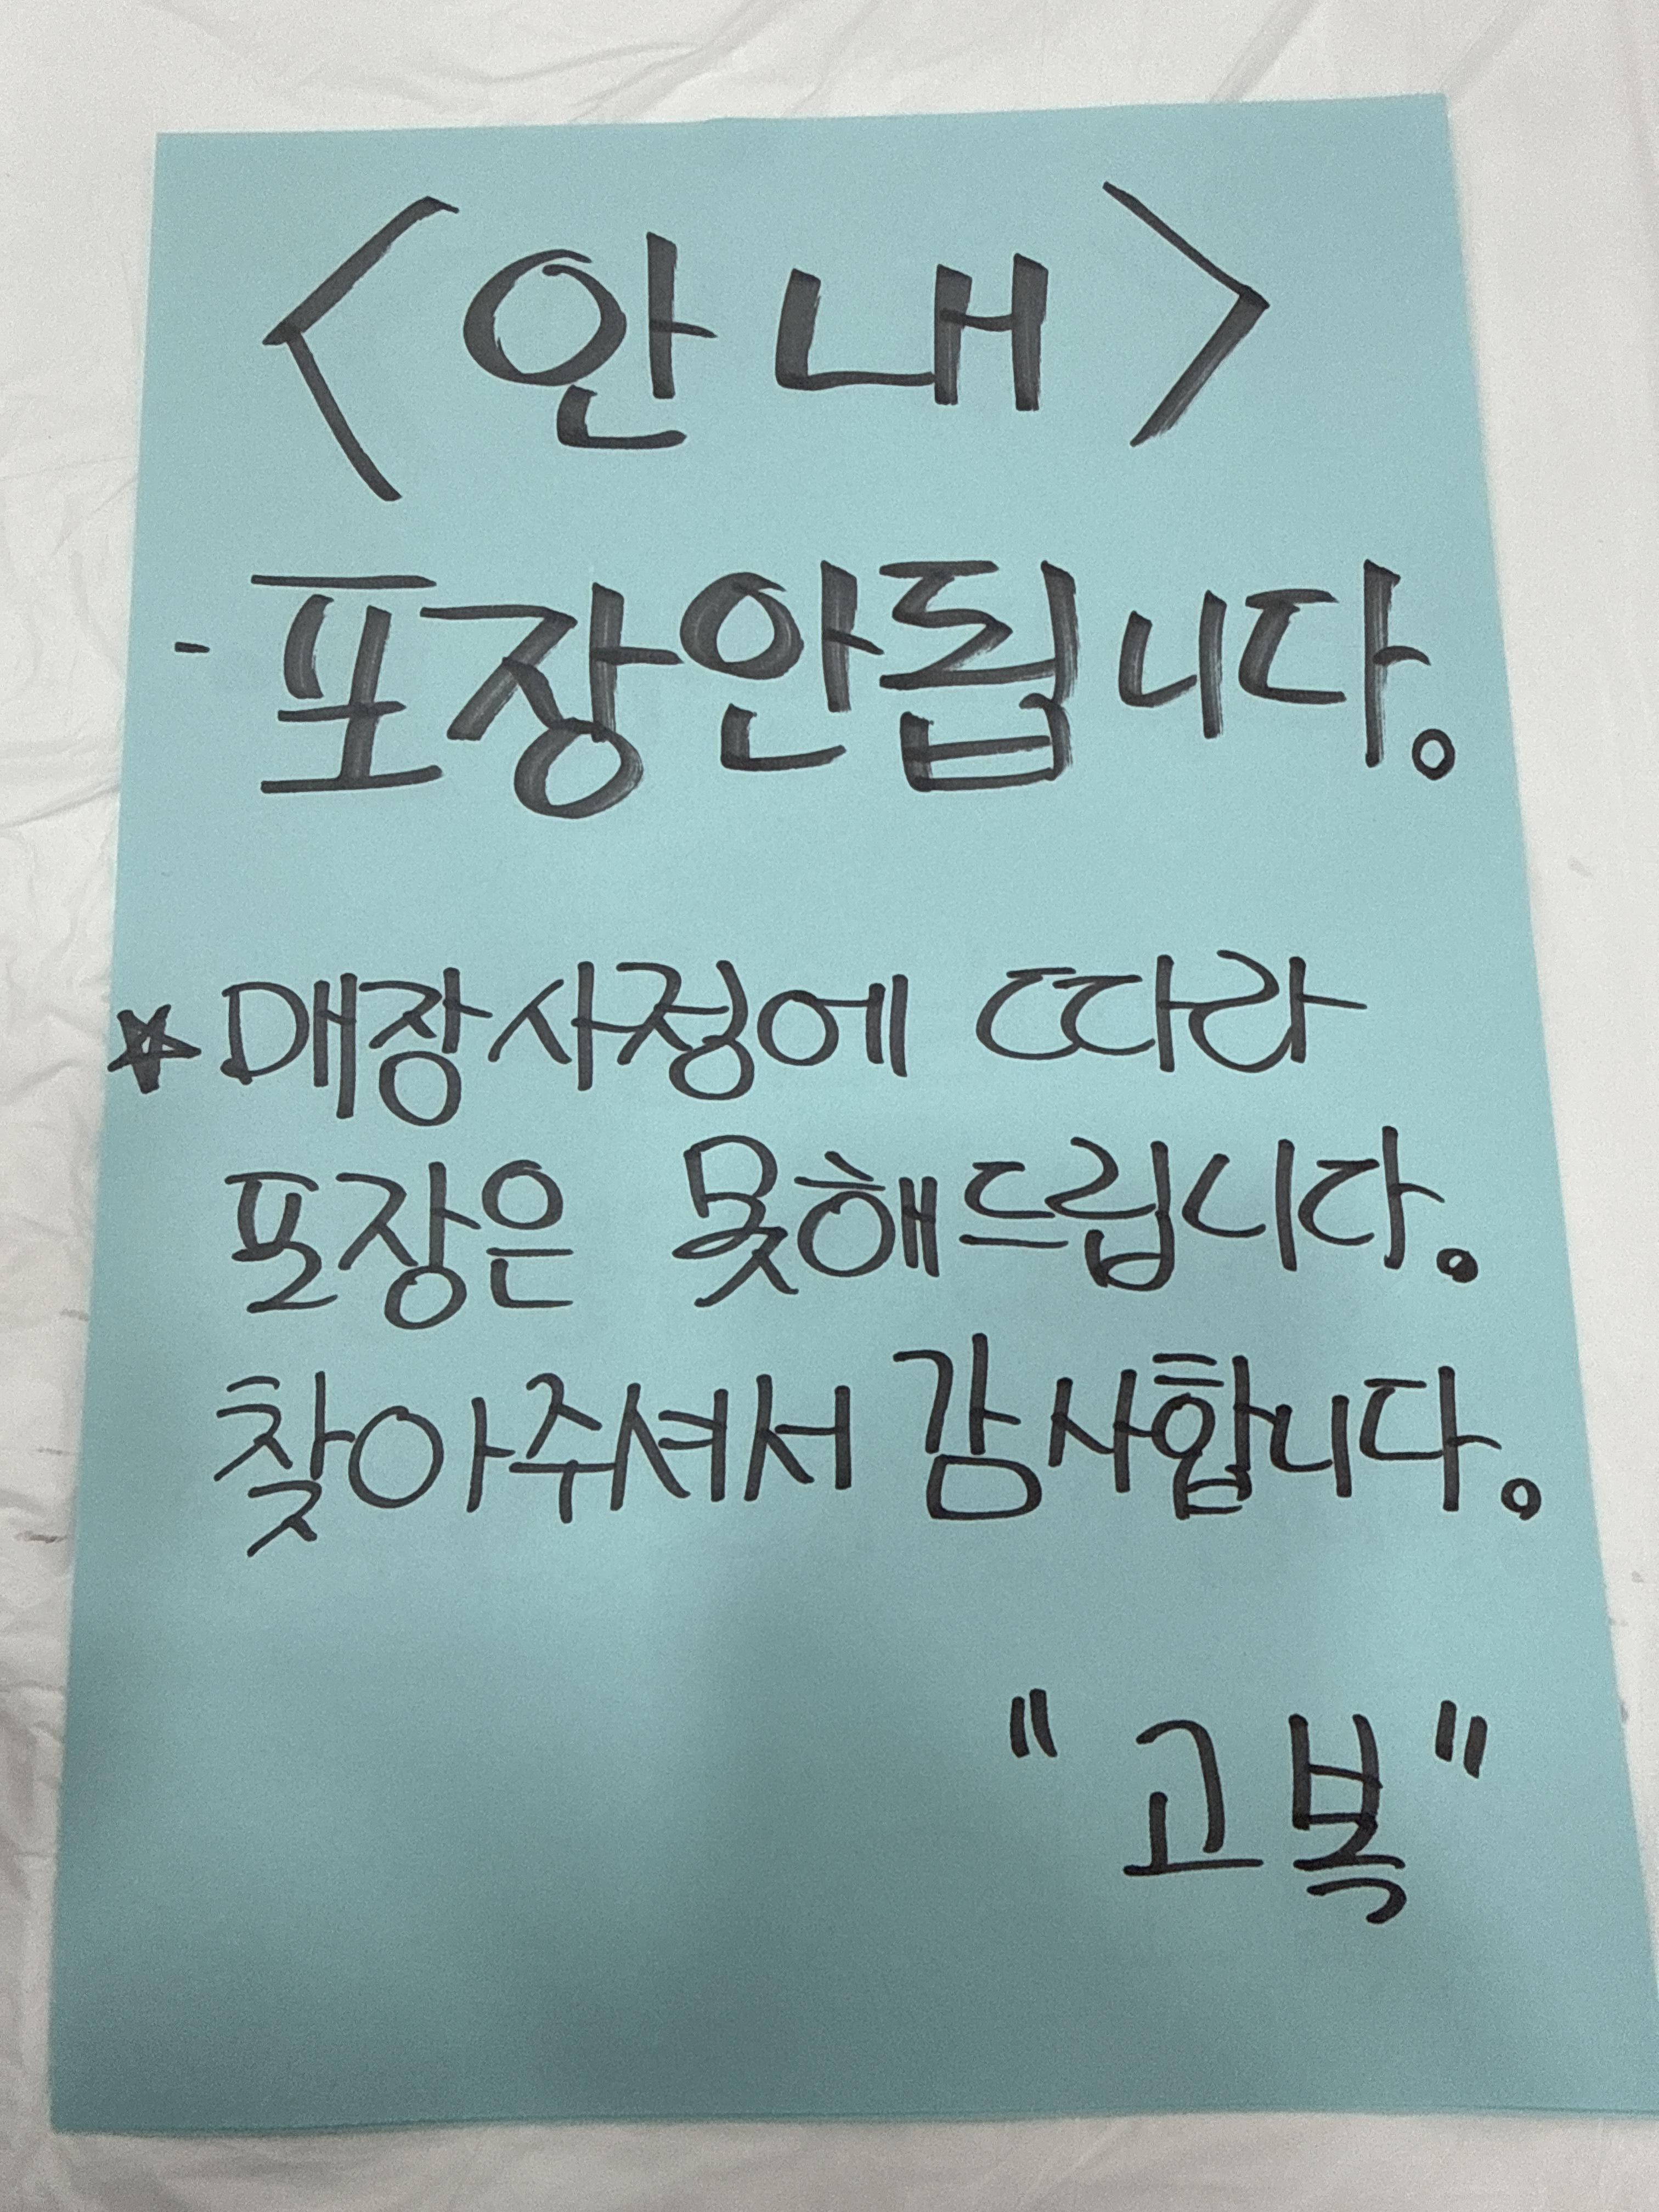 <안내>
- 포장안됩니다.
☆ 매장사정에 따라
포장은 못해드립니다.
찾아주셔서 감사합니다.
"고복"